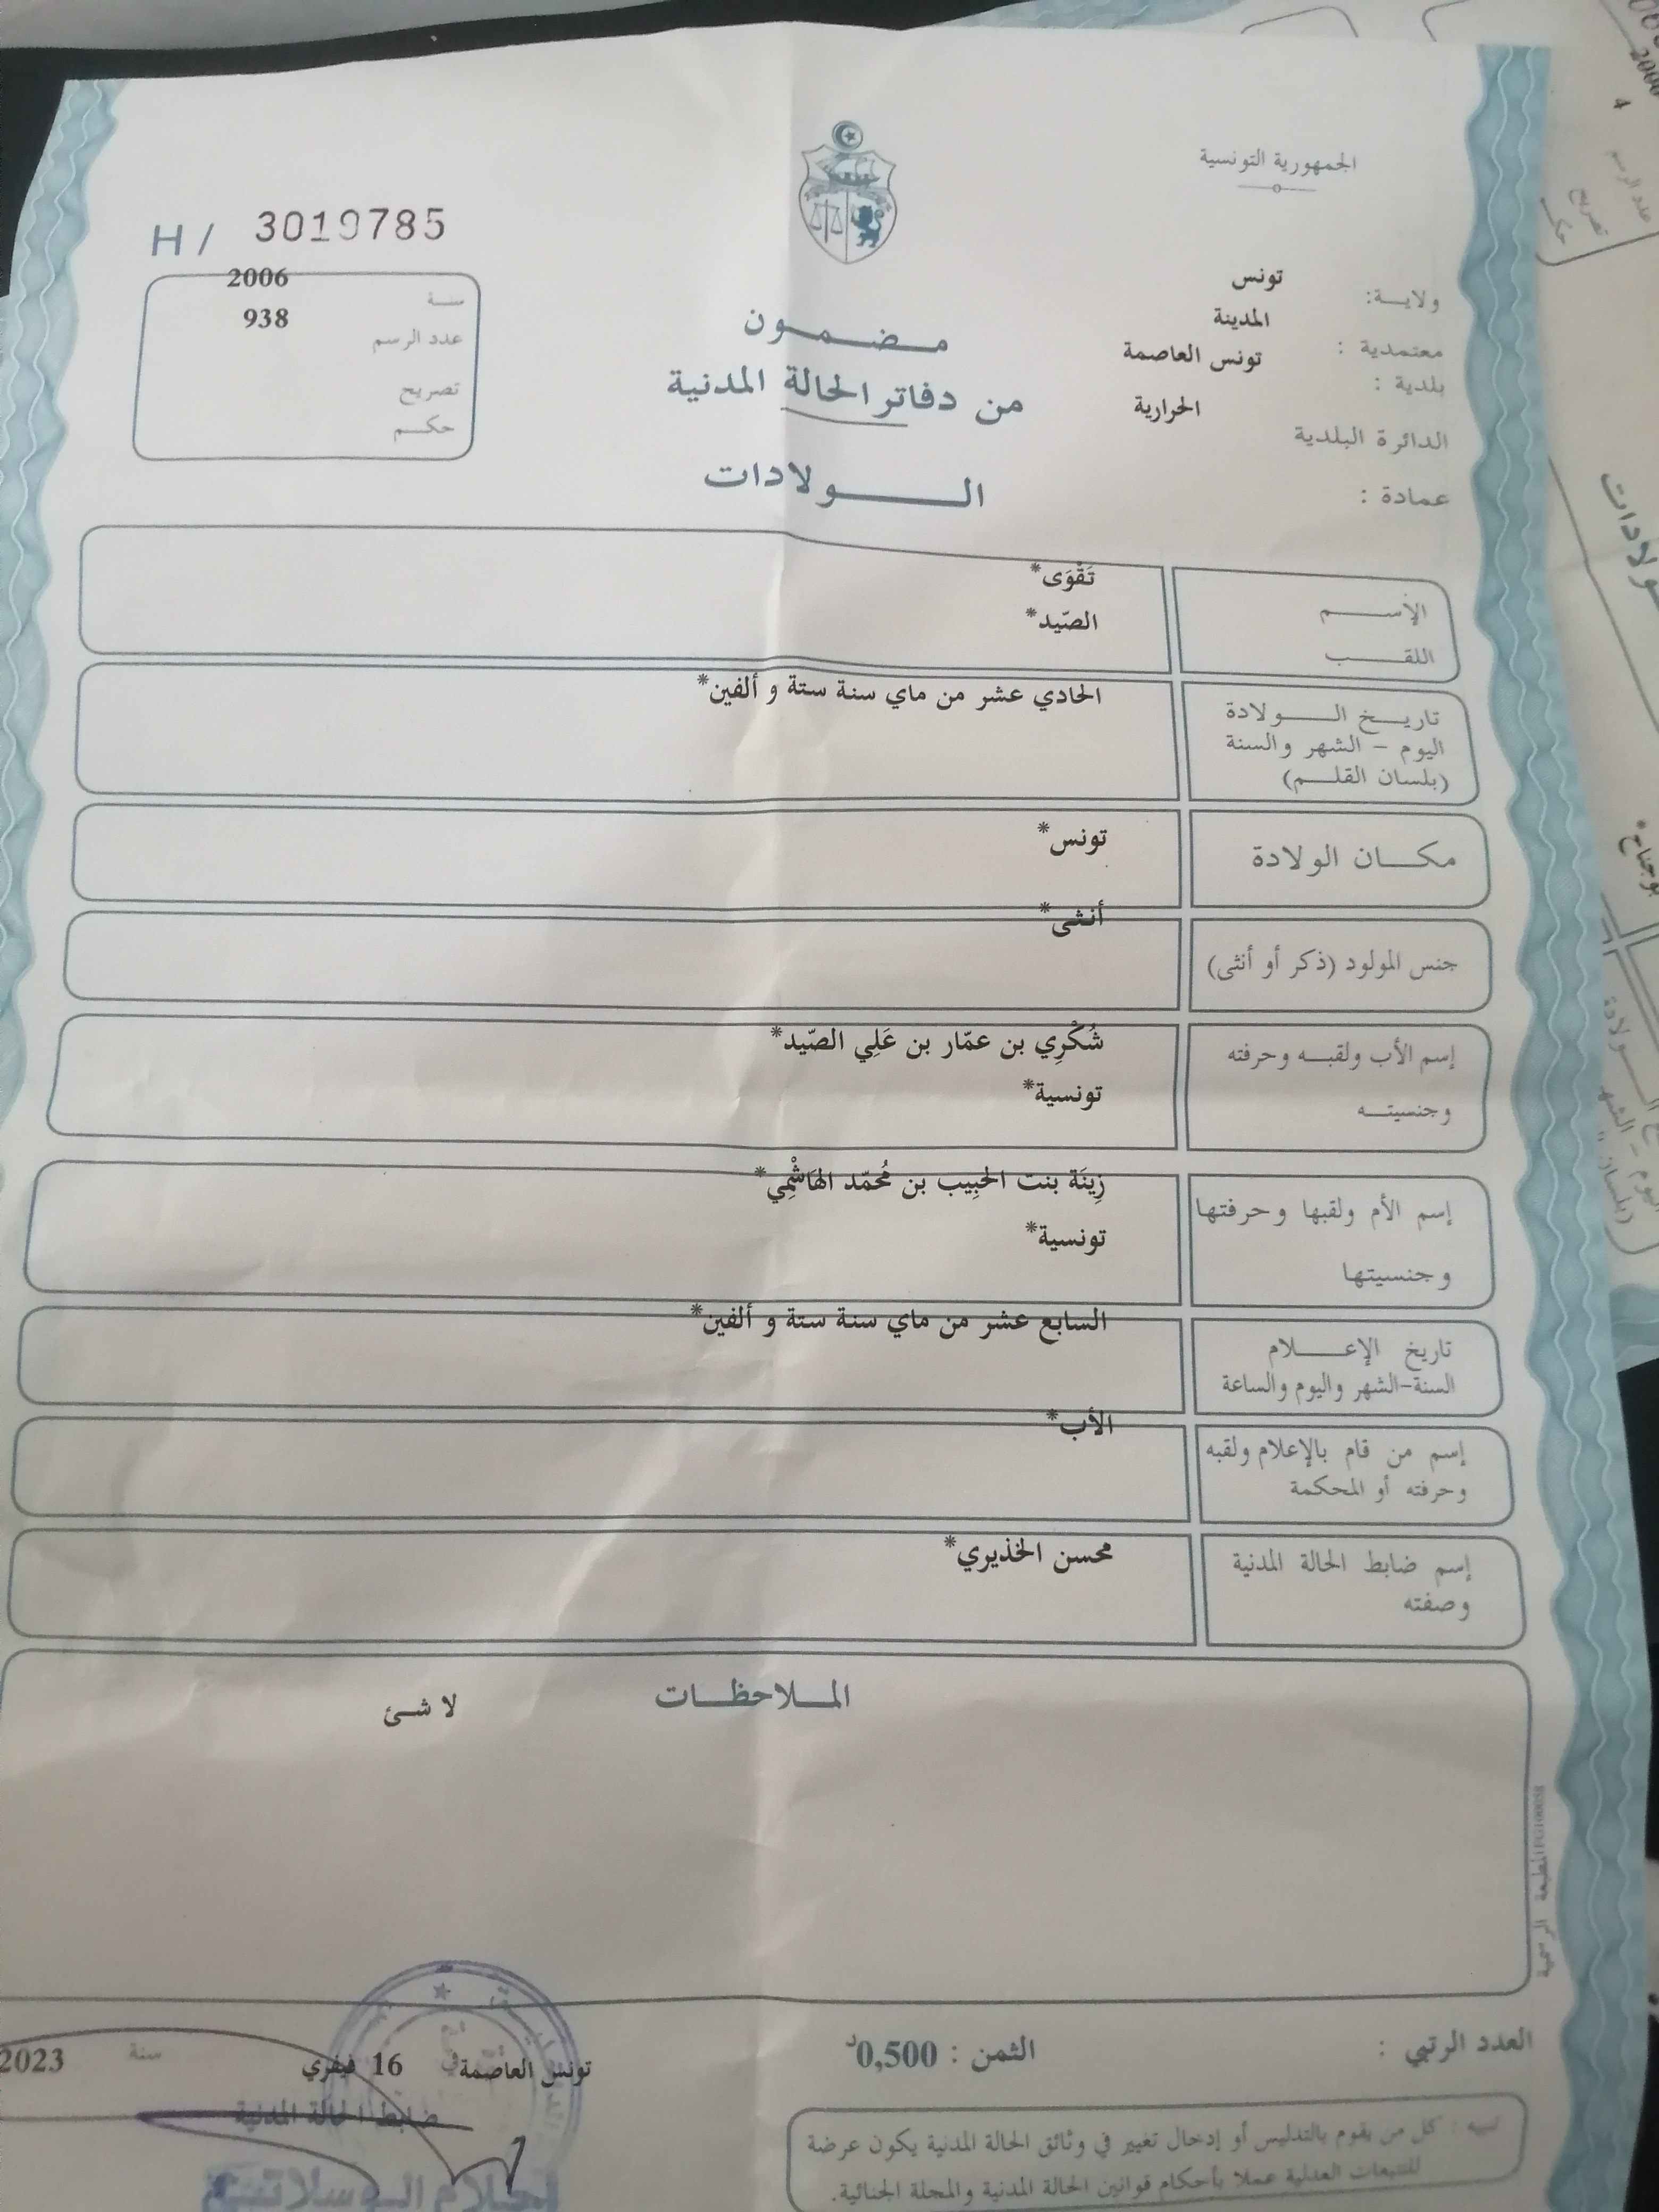 الجمهورية التونسية
H / 3019785
ولايـــة: تونس
معتمدية : المدينة
بلدية : تونس العاصمة
الدائرة البلدية الحرارية
عمادة :
سنـــة 2006
عدد الرسم 938
تصريح
حكـــم
مـــضـــمـــون
من دفاتر الحالة المدنية
الـــــولادات
الإســـــم تَقْوَى*
اللقـــــب الصّيد*
تاريـــخ الـــــولادة الحادي عشر من ماي سنة ستة و ألفين*
اليوم – الشهر والسنة
(بلسان القلـــم)
مكـــان الولادة تونس*
جنس المولود (ذكر أو أنثى) أنثى*
إسم الأب ولقبـــه وحرفته شُكْرِي بن عمّار بن عَلِي الصّيد*
وجنسيتـــه تونسية*
إسم الأم ولقبها وحرفتها زِينَة بنت الحَبِيب بن مُحمّد الهَاشْمِي*
وجنسيتها تونسية*
تاريخ الإعـــــلام السابع عشر من ماي سنة ستة و ألفين*
السنة-الشهر واليوم والساعة
إسم من قام بالإعلام ولقبه الأب*
وحرفته أو المحكمة
إسم ضابط الحالة المدنية محسن الخذيري*
وصفته
المـــلاحظـــات
لا شئ
المطبعة الرسمية
العدد الرتبي :
الثمن : 0,500د
تونس العاصمة في 16 فيفري سنة 2023
ضابط الحالة المدنية
تنبيه : كل من يقوم بالتدليس أو إدخال تغيير في وثائق الحالة المدنية يكون عرضة
للتتبعات العدلية عملا بأحكام قوانين الحالة المدنية والمجلة الجنائية.